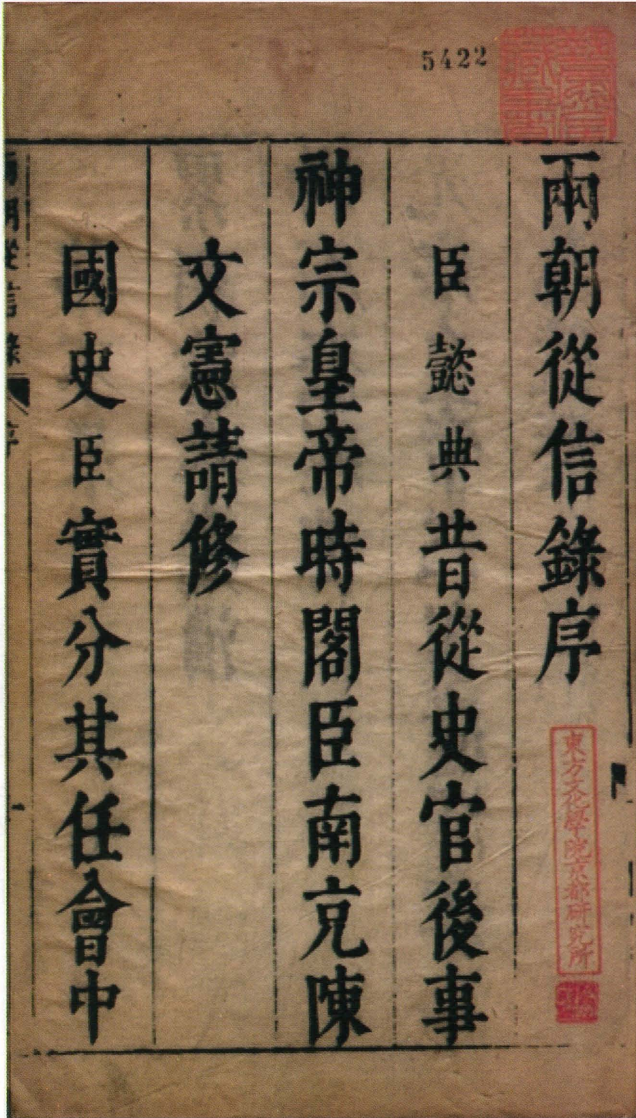 5422
兩朝從信錄序
臣懿典昔從史官後事
神宗皇帝時閣臣南充陳
文憲請修
國史臣實分其任會中
東方文化學院京都研究所
兩朝從信錄 序